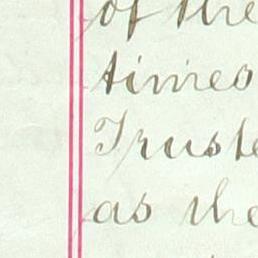 of the
times
Truste
as the